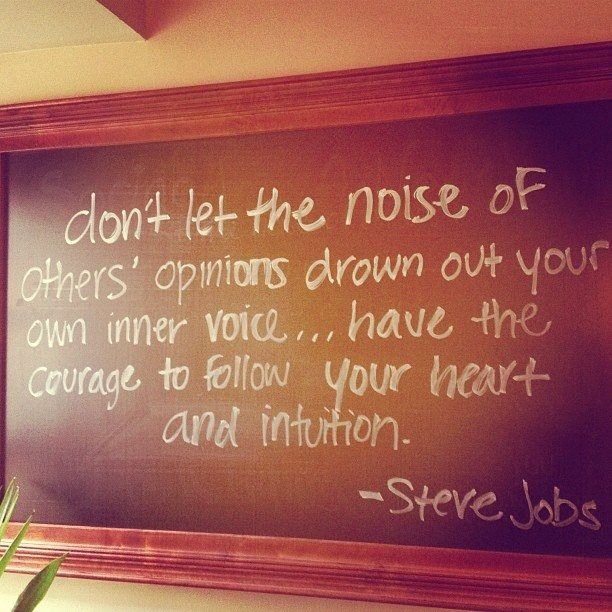 don't let the noise of
others' opinions drown out your
own inner voice... have the
courage to follow your heart
and intuition.
-Steve Jobs